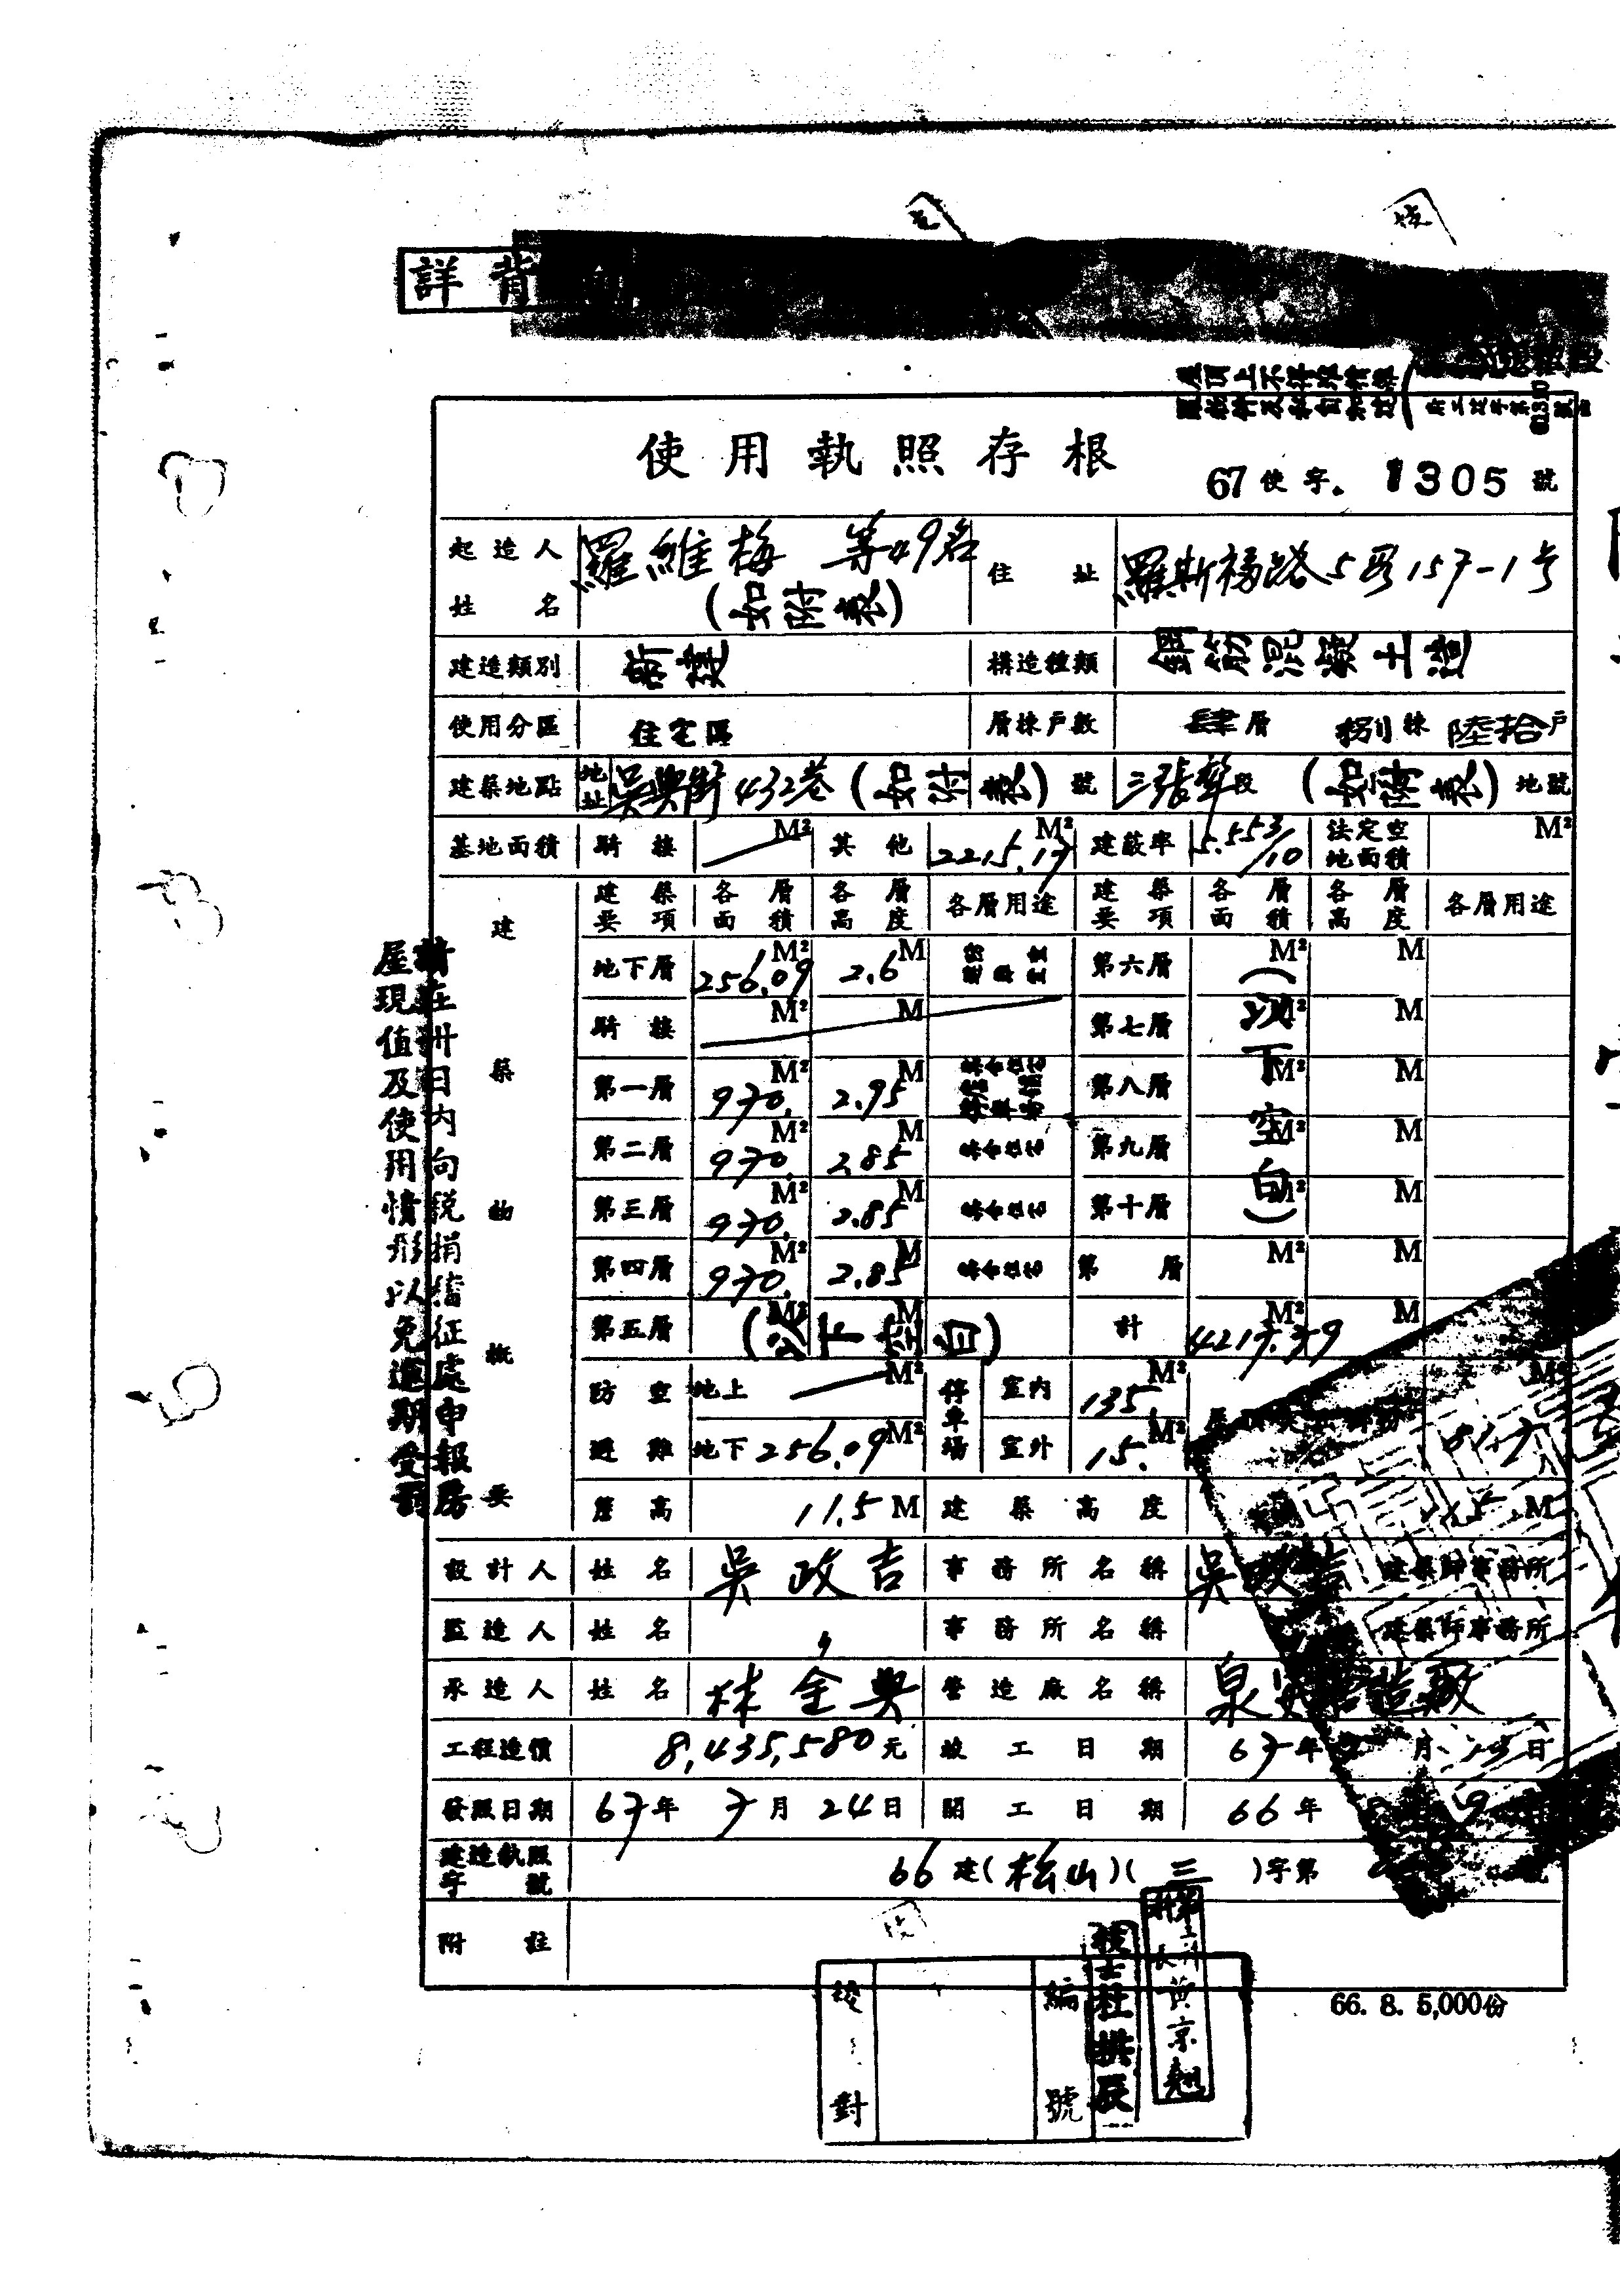 詳 背
使用執照存根
67使字. 1305 號
起造人姓名 羅維梅 等49名 (如附表) 住址 羅斯福路5段157-1号
建造類別 新建 構造種類 鋼筋混凝土造
使用分區 住宅區 層棟戶數 肆層 捌棟 陸拾戶
建築地點 地址 吳興街432巷(如附表)號 三張犂段(如附表)地號
基地面積 騎樓 M² 其他 2215.17 M² 建蔽率 5.553/10 法定空地面積 M²
建築物概要
建築要項 各層面積 各層高度 各層用途 建築要項 各層面積 各層高度 各層用途
地下層 256.09 M² 2.6 M 第六層 M² M
騎樓 M² M 第七層 M² M
第一層 970. M² 2.95 M 第八層 M² M
第二層 970. M² 2.85 M 第九層 M² M
第三層 970. M² 2.85 M 第十層 M² M
第四層 970. M² 2.85 M 第 層 M² M
(以下空白)
第五層 (以下空白) M² M 計 M² M
防空避難 地上 M² 停車場 室內 135. M² M²
地下 256.09 M² 室外 15. M²
簷高 11.5 M 建築高度 M
設計人 姓名 吳政吉 事務所名稱 吳政吉 建築師事務所
監造人 姓名 〃 事務所名稱 建築師事務所
承造人 姓名 林金興 營造廠名稱
工程造價 8,435,580元 竣工日期 67年 月 日
發照日期 67年7月24日 開工日期 66年
建造執照字號 66建(松山)(三)字第 號
附註
請在卅日內向稅捐稽征處申報房
屋現值及使用情形以免逾期受罰
66. 8. 5,000份
校對
編號